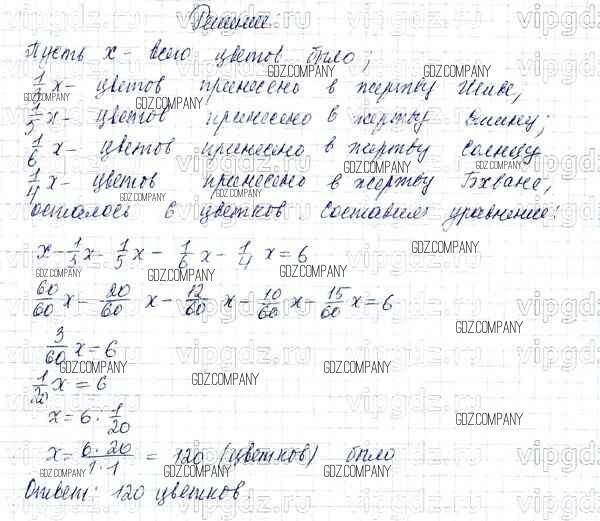 Решение:
Пусть x - всего цветов было;
1/3 x - цветов принесено в жертву Шиве,
1/5 x - цветов принесено в жертву Вишну;
1/6 x - цветов принесено в жертву Солнцу
1/4 x - цветов принесено в жертву Бхване,
осталось 6 цветков. Составим уравнение:
x - 1/3 x - 1/5 x - 1/6 x - 1/4 x = 6
60/60 x - 20/60 x - 12/60 x - 10/60 x - 15/60 x = 6
3/60 x = 6
1/20 x = 6
x = 6 · 1/20
x = 6·20/1·1 = 120 (цветков) было
Ответ: 120 цветков.